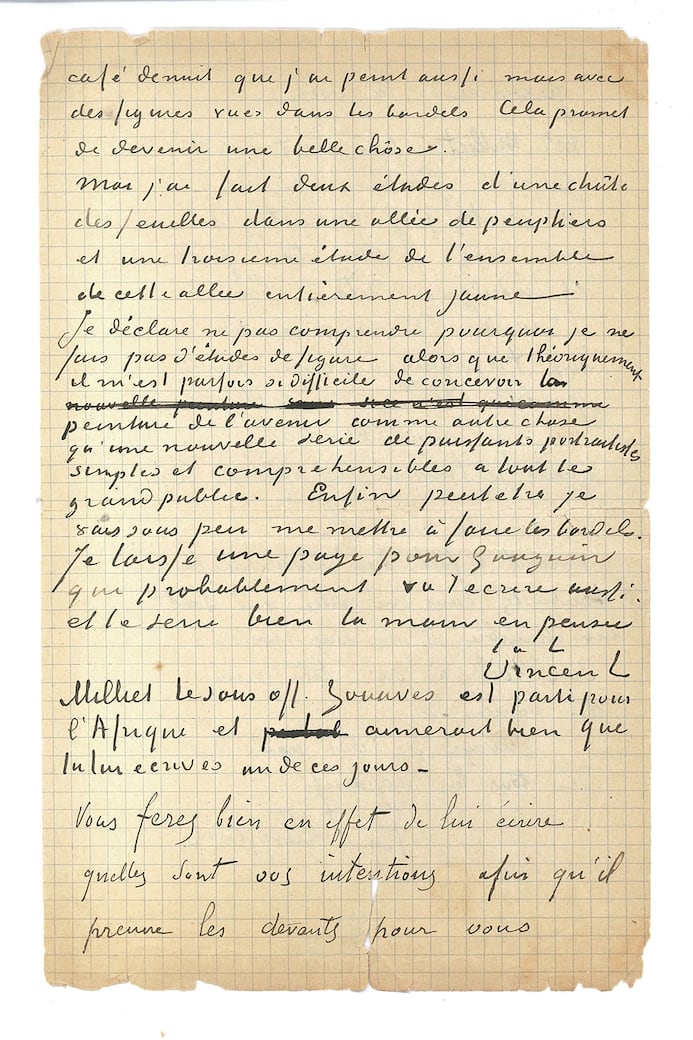 café de nuit que j'ai peint aussi mais avec
des figures vues dans les bordels Cela promet
de devenir une belle chôse.
moi j'ai fait deux études d'une chûte
des feuilles dans une allée de peupliers
et une troisieme étude de l'ensemble
de cette allée entièrement jaune
Je déclare ne pas comprendre pourquoi je ne
fais pas d'études de figure alors que théoriquement
il m'est parfois si difficile de concevoir la
nouvelle peinture comme
peinture de l'avenir comme autre chose
qu'une nouvelle serie de puissants portraitistes
simples et comprehensibles a tout le
grand public. Enfin peut etre je
vais sous peu me mettre à faire les bordels.
Je laisse une page pour Gauguin
qui probablement va t'ecrire aussi.
et te serre bien la main en pensée
t. à t.
Vincent
Milliet le sous off. Zouaves est parti pour
l'Afrique et aimerait bien que
tu lui ecrives un de ces jours –
Vous ferez bien en effet de lui écrire
quelles sont vos intentions afin qu'il
prenne les devants pour vous